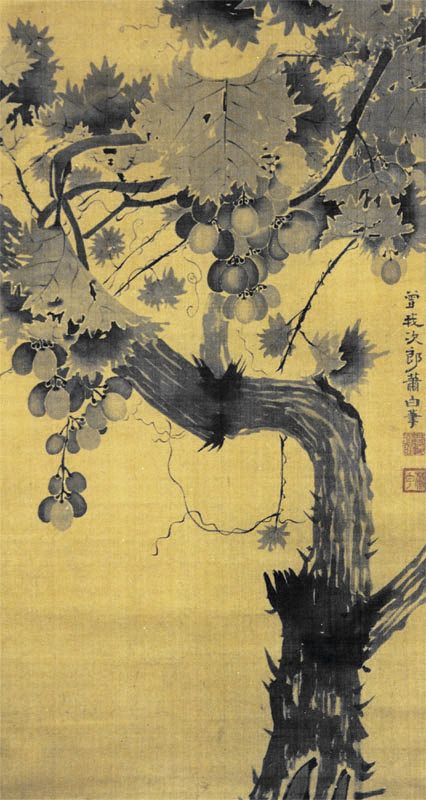 曽我次郎蕭白筆